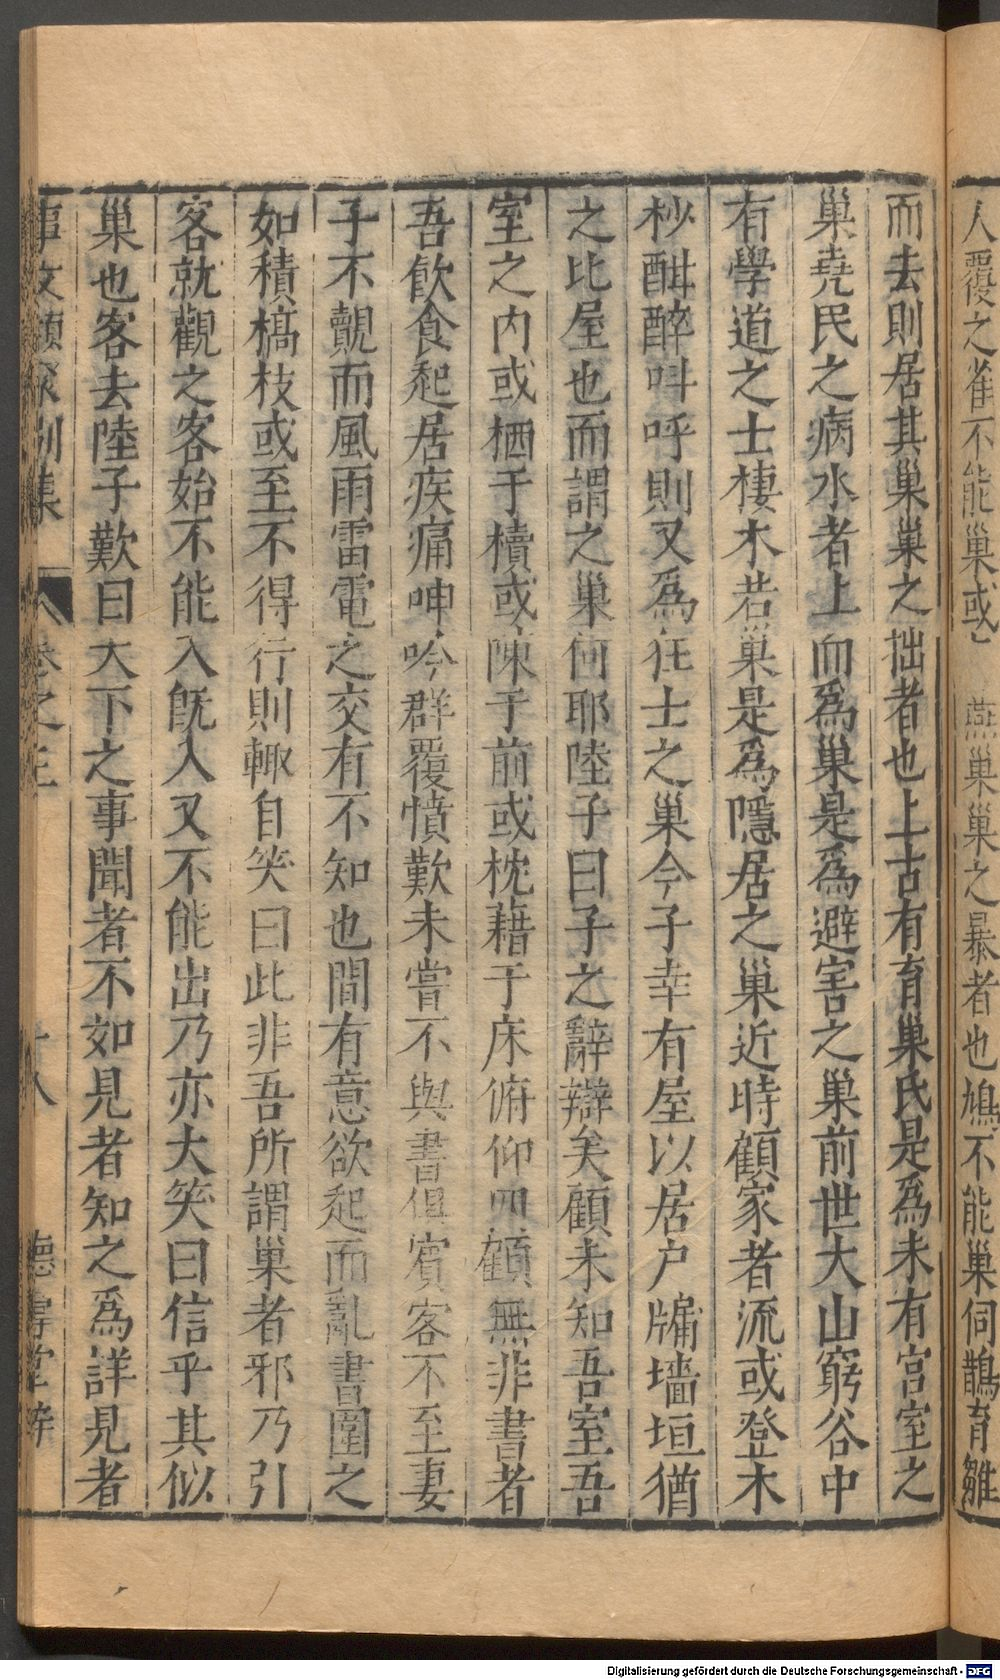 人覆之雀不能巢或 燕巢巢之暴者也鳩不能巢伺鵲育雛
而去則居其巢巢之拙者也上古有有巢氏是爲未有宮室之
巢堯民之病水者上而爲巢是爲避害之巢前世大山窮谷中
有學道之士棲木若巢是爲隱居之巢近時顧家者流或登木
杪酣醉叫呼則又爲狂士之巢今子幸有屋以居户牖墻垣猶
之比屋也而謂之巢何耶陸子曰子之辭辯矣顧未知吾室吾
室之内或栖于櫝或陳于前或枕藉于床俯仰四顧無非書者
吾飲食起居疾痛呻吟群覆憤歎未嘗不與書俱賓客不至妻
子不覿而風雨雷電之交有不知也間有意欲起而亂書圍之
如積槁枝或至不得行則輙自笑曰此非吾所謂巢者邪乃引
客就觀之客始不能入旣入又不能出乃亦大笑曰信乎其似
巢也客去陸子歎曰天下之事聞者不如見者知之爲詳見者
事文類聚别集 卷之三 十八 德壽堂梓
Digitalisierung gefördert durch die Deutsche Forschungsgemeinschaft - DFG